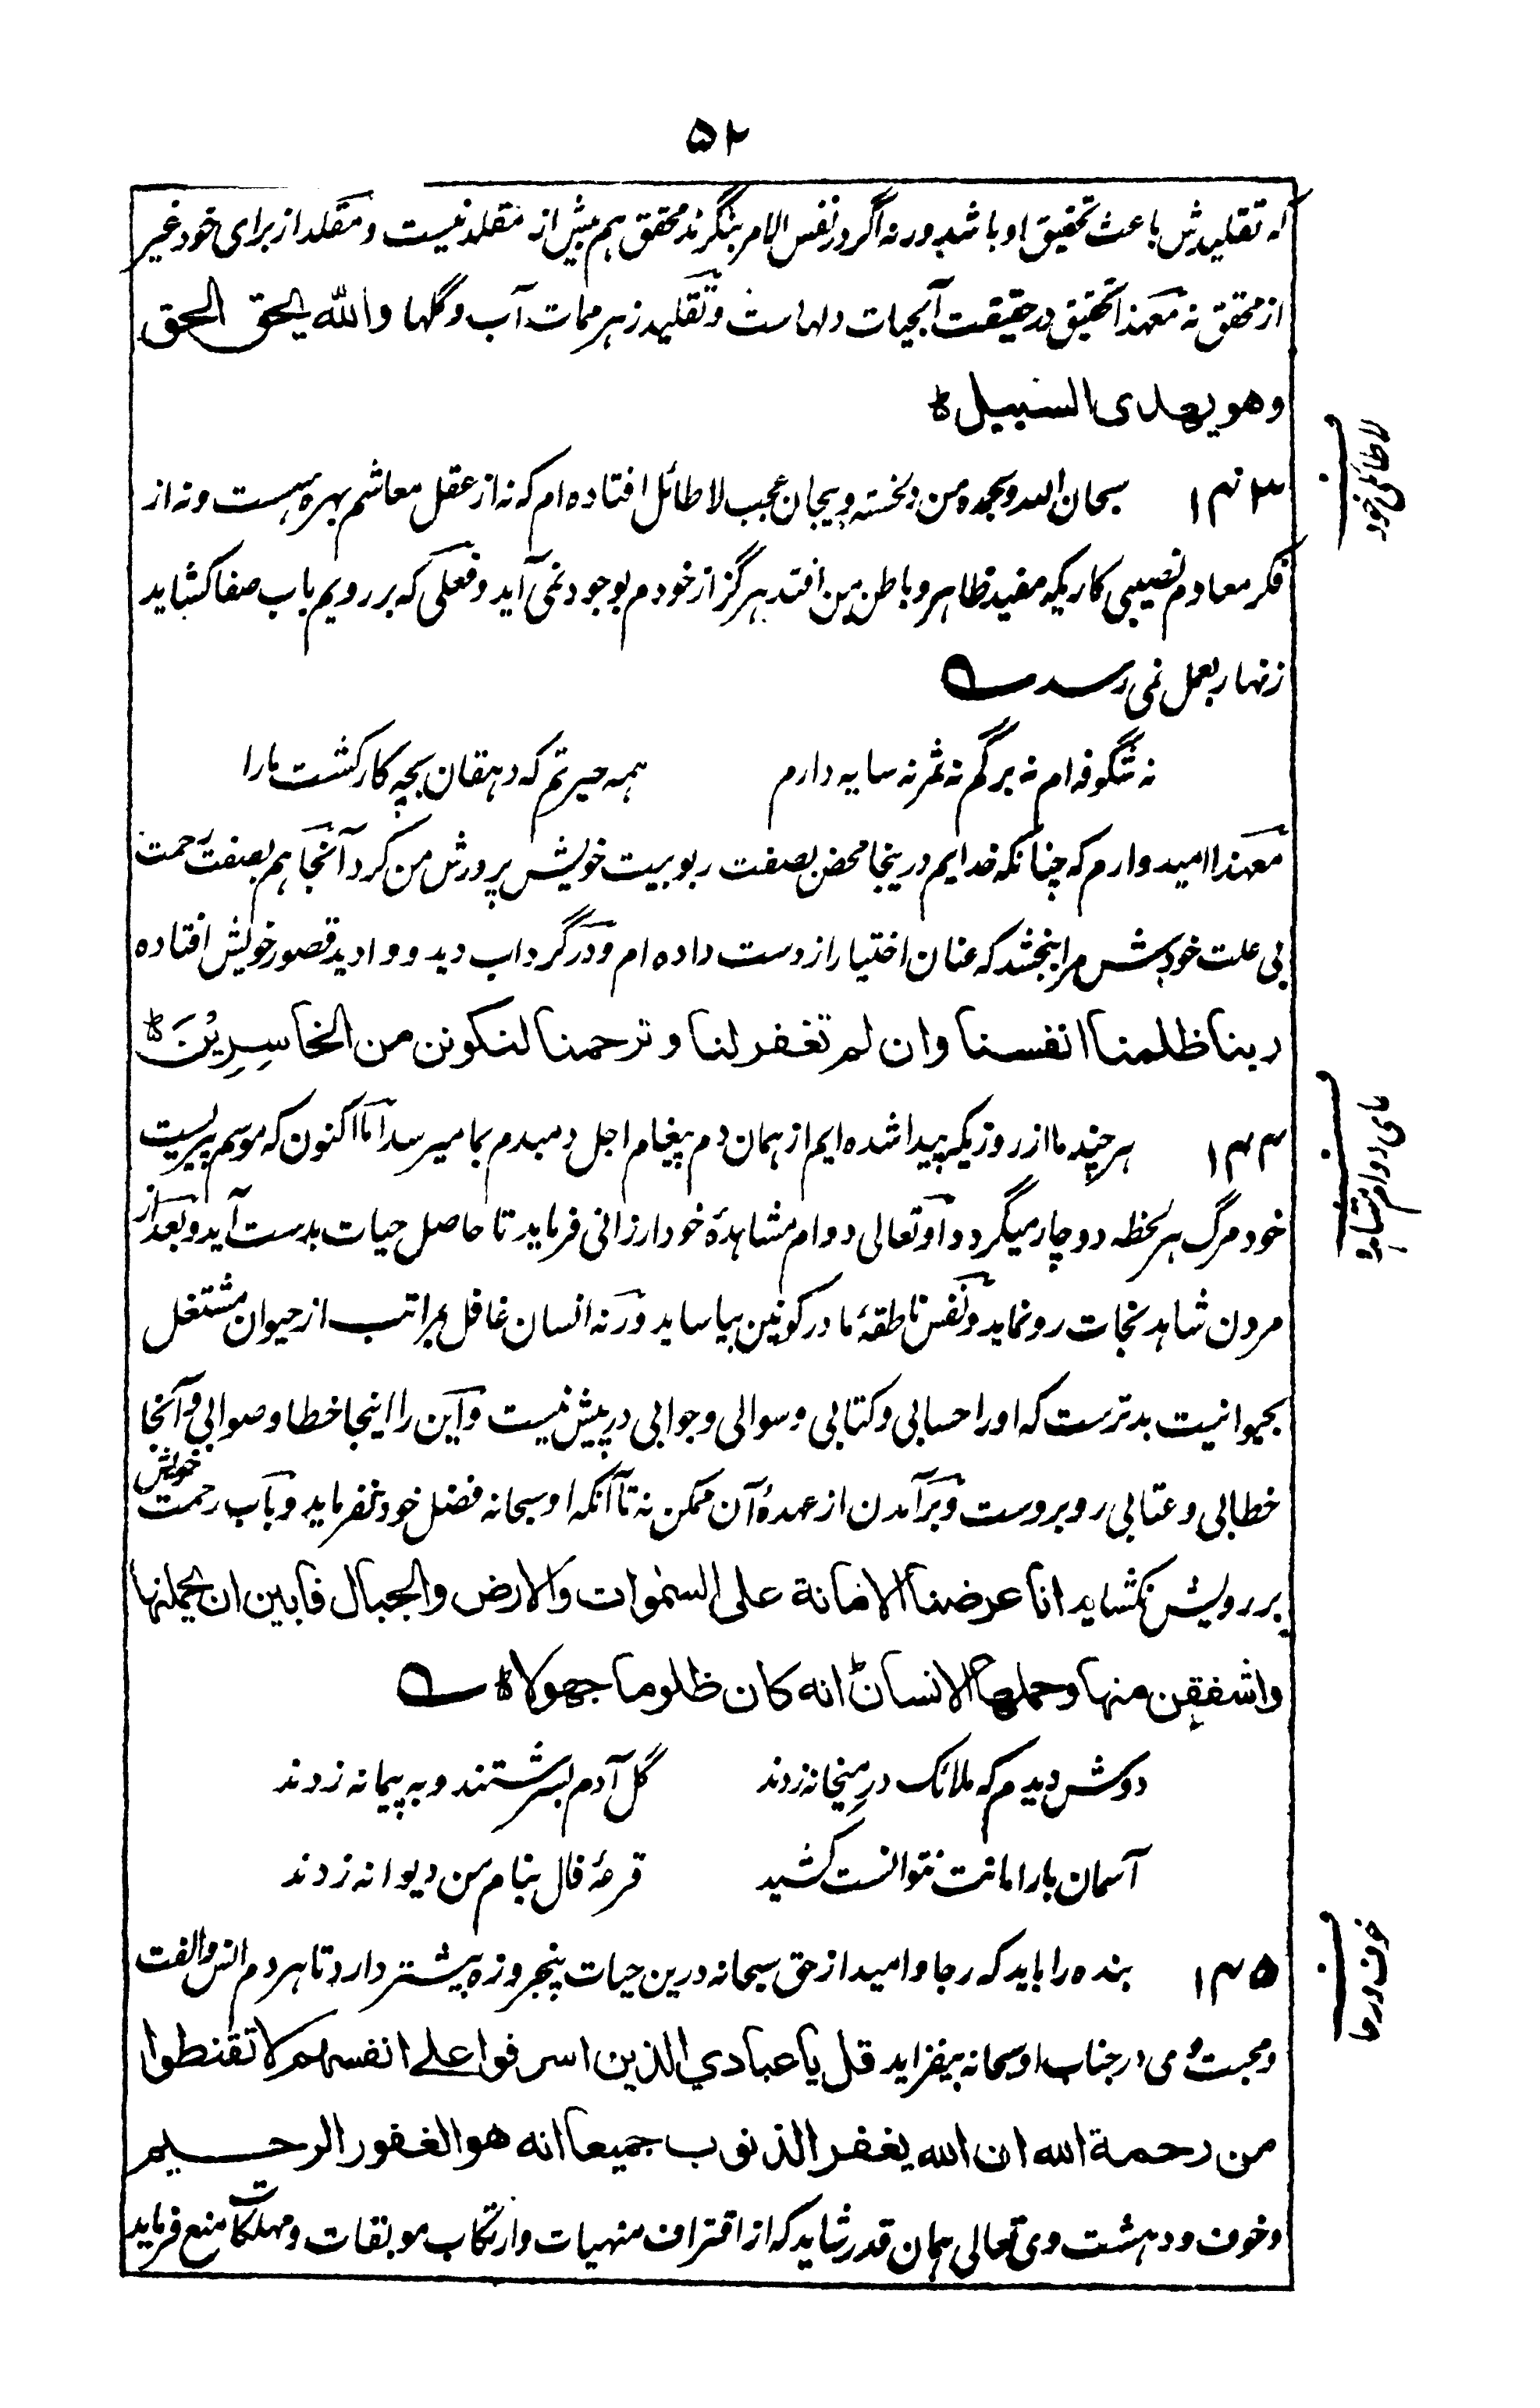 ۵۲
که تقلیدش باعث تحقیق او باشد ورنه اگر در نفس الامر بنگرند محقق هم بیش از مقلد نیست و مقلد از برای خود غیر
از محقق نه معهذا تحقیق در حقیقت آبحیات دلهاست و تقلید زهر ممات آب و گلها والله یحق الحق
وهو یهدی السبیل ٥
۱۴۳ سبحان الله و بحمده من دلخسته و بیجان عجب لا طائل افتاده ام که نه از عقل معاشم بهره هست و نه از
فکر معادم نصیبی کاریکه مفید ظاهر و باطن من افتد هرگز از خودم بوجود نمی آید و فعلی که بر رویم باب صفا کشاید
زنهار بعمل نمی رسد
نه شگوفه ام نه برگم نه ثمر نه سایه دارم همه حیرتم که دهقان بچه کار کشت مارا
معهذا امیدوارم که چنانکه خدایم درینجا محض بصفت ربوبیت خویش پرورش من کرد آنجا هم بصفت رحمت
بی علت خودش مرا ببخشد که عنان اختیار از دست داده ام و در گرداب دید و وادید قصور خویش افتاده
ربنا ظلمنا انفسنا وان لم تغفر لنا و ترحمنا لنکونن من الخاسِرِیْنَ ٥
۱۴۴ هر چند ما از روزیکه پیدا شده ایم از همان دم پیغام اجل دمبدم بما میرسد اما اکنون که موسم پیریست
خود مرگ هر لحظه دوچار میگردد او تعالی دوام مشاهدهٔ خود ارزانی فرماید تا حاصل حیات بدست آید و بعد از
مردن شاهد نجات رو نماید و نفس ناطقهٔ ما در کونین بیاساید ورنه انسان غافل بمراتب از حیوان مشتغل
بحیوانیت بدترست که او را حسابی و کتابی و سوالی و جوابی در پیش نیست و این را اینجا خطا و صوابی و آنجا
خطابی و عتابی روبروست و برآمدن از عهدهٔ آن ممکن نه تا آنکه او سبحانه فضل خود نفرماید و باب رحمت خویش
بر رویش نکشاید انا عرضنا الامانة علی السموات والارض والجبال فابین ان یحملنها
واشفقن منها وحملها الانسان انه کان ظلوما جهولا ٥
دوش دیدم که ملائک در میخانه زدند گل آدم بسرشتند و به پیمانه زدند
آسمان بار امانت نتوانست کشید قرعهٔ فال بنام من دیوانه زدند
۱۴۵ بنده را باید که رجا و امید از حق سبحانه درین حیات پنجروزه بیشتر دارد تا هر دم انس و الفت
و محبت وی در جناب او سبحانه بیفزاید قل یا عبادي الذین اسرفوا علے انفسهم لا تقنطوا
من رحمة الله ان الله یغفر الذنوب جمیعا انه هو الغفور الرحیم
و خوف و دهشت وی تعالی همان قدر شاید که از اقتراف منهیات و ارتکاب موبقات و مهلکات منع فرماید
لا طائلی خود
دوام مشاهده
خوف و رجا